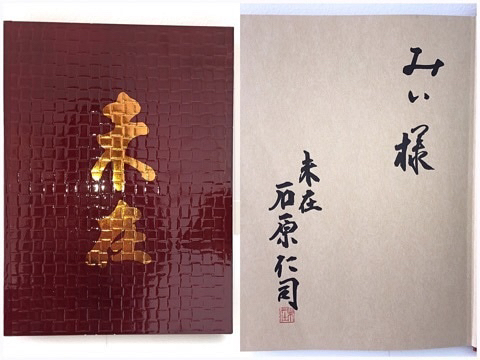 未在
みい様
未在
石原仁司